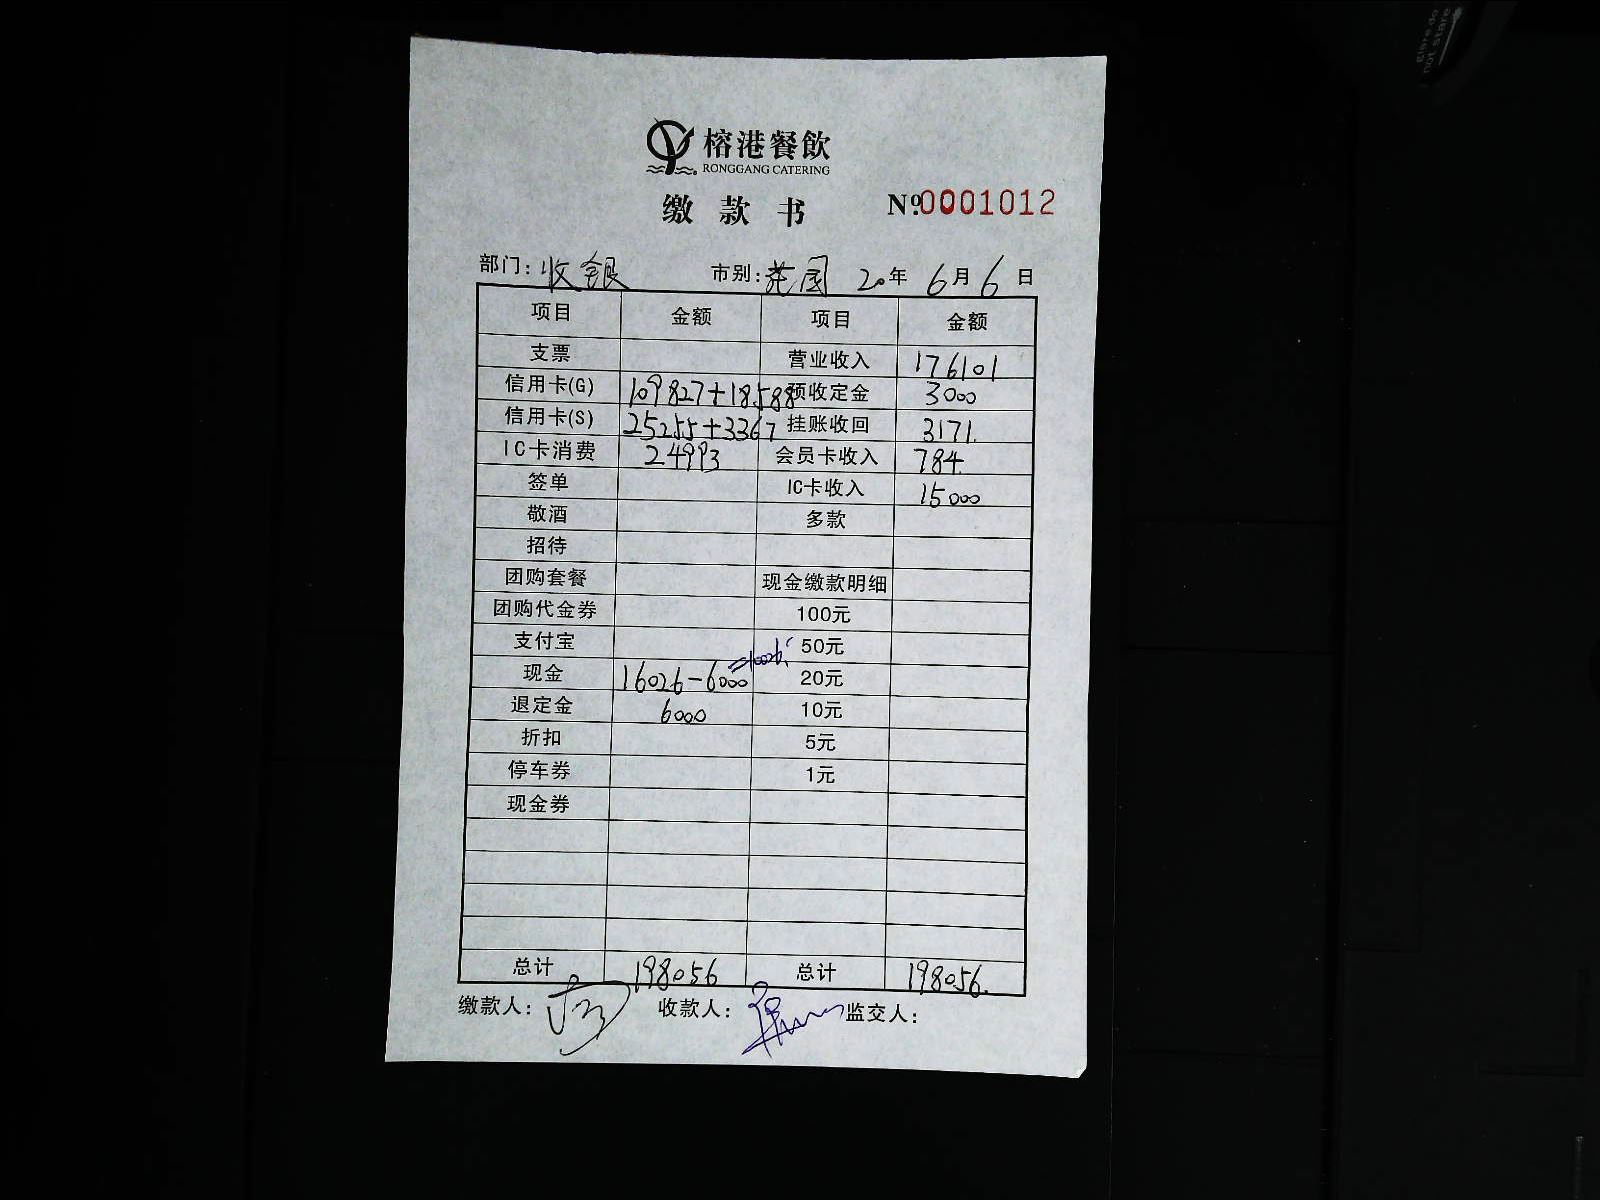 glare do
not stare
榕港餐飲
RONGGANG CATERING
缴款书 Nº0001012
部门:收银 市别:花园 20年6月6日
项目 金额 项目 金额
支票 营业收入 176101
信用卡(G) 109827+18588 预收定金 3000
信用卡(S) 25255+3367 挂账收回 3171.
IC卡消费 24993 会员卡收入 784.
签单 IC卡收入 15000
敬酒 多款
招待
团购套餐 现金缴款明细
团购代金券 100元
支付宝 50元
现金 16026-6000 =10026. 20元
退定金 6000 10元
折扣 5元
停车券 1元
现金券
总计 198056 总计 198056.
缴款人: 收款人: 监交人: